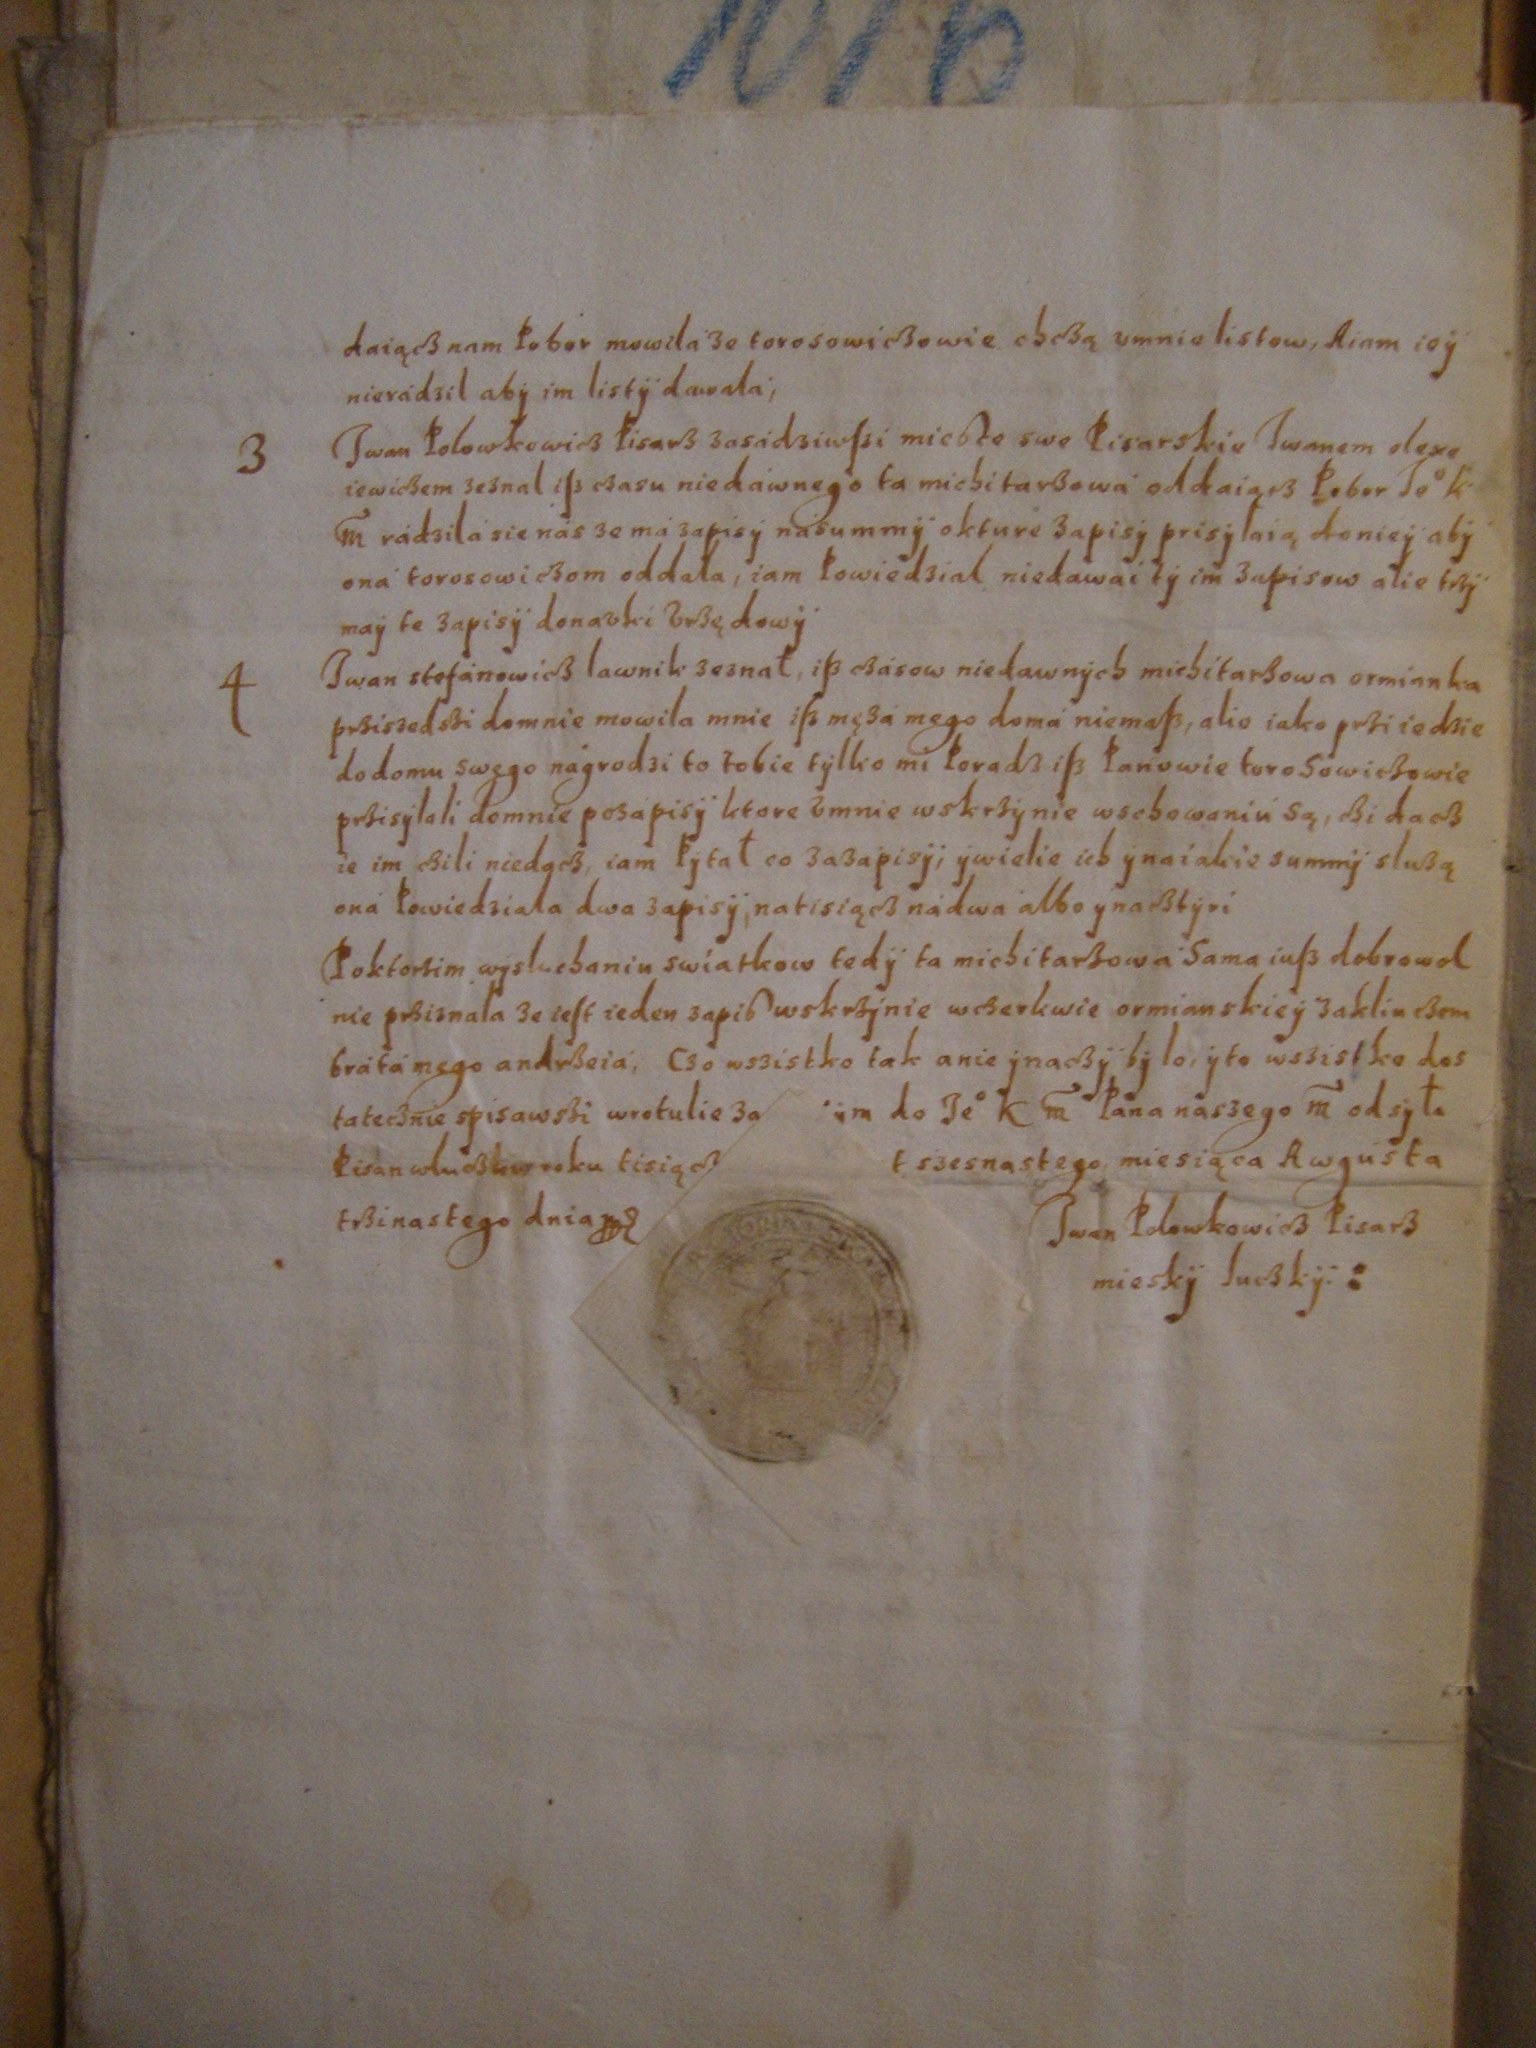 101 b
daiącz nam Pobor mowila ze torosowiczowie chczą vmnie listow, Aiam ieÿ
nieradził abÿ im listÿ dawała,
3 Iwan Polowkowicz Pisarz zasadziwßi mieste swe Pisarskie Iwanem olexe
iewiczem zeznal iß czasu niedawnego ta michitarzowa oddaiącz Pobor Ieº K
m̃ radzila sie nas ze ma zapisÿ nasummÿ okture zapisÿ prisÿlaią donieÿ abÿ
ona torosowiczom oddala, iam Powiedzial niedawai tÿ im zapisow alie trzÿ
maÿ te zapisÿ donavki Vrzędowÿ
4 Iwan stefanowicz lawnik zeznał, iß czasow niedawnÿch michitarzowa ormianka
prziszedszi domnie mowila mnie iß męza mego doma niemaß, alie iako prziiedzie
dodomu swęgo nagrodzi to tobie tÿlko mi Poradz iß Panowie toroSowiczowie
przisÿlali domnie pozapisÿ ktore Vmnie wskrzÿnie wschowaniu Są, czi dacz
ie im czili niedacz, iam Pÿtał co zazapisÿ, ÿwielie ich ÿnaiakie summÿ slużą
ona Powiedziala dwa zapisÿ, natisiącz nadwa albo ÿnacztÿri
Poktorzim wÿsluchaniu swiatkow tedÿ ta michitarzowa Sama iuß dobrowol
nie prziznala ze iest ieden zapis wskrzÿnie wczerkwie ormianskieÿ zakliuczem
brata mego andrzeia, Czo wszistko tak anie ÿnaczÿ bÿlo, ÿto wszistko dos
tatecznie spisawszi wrotulie za ÿm do Ieº K m̃ Pana naszego m̃ odsÿła
Pisan wluczku roku tisiącz t szesnastego miesiąca Awgusta
trzinastego dnia
Iwan Polowkowicz Pisarz
mieskÿ luczkÿ: